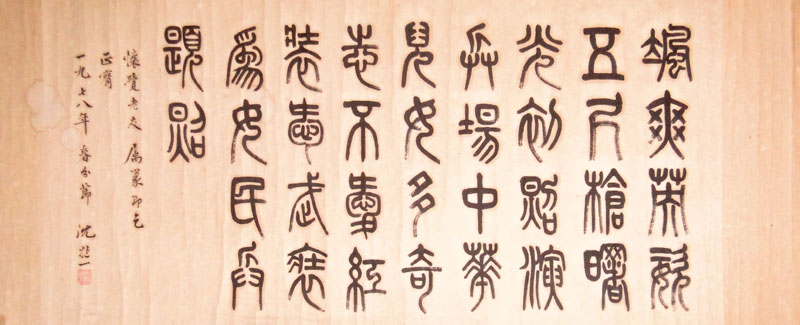 颯爽英姿
五尺槍曙
光初照演
兵場中華
兒女多奇
志不愛紅
裝愛武裝
爲女民兵
題照
懷覺老友 屬篆即乞
正
一九七八年 春分節 沈 一